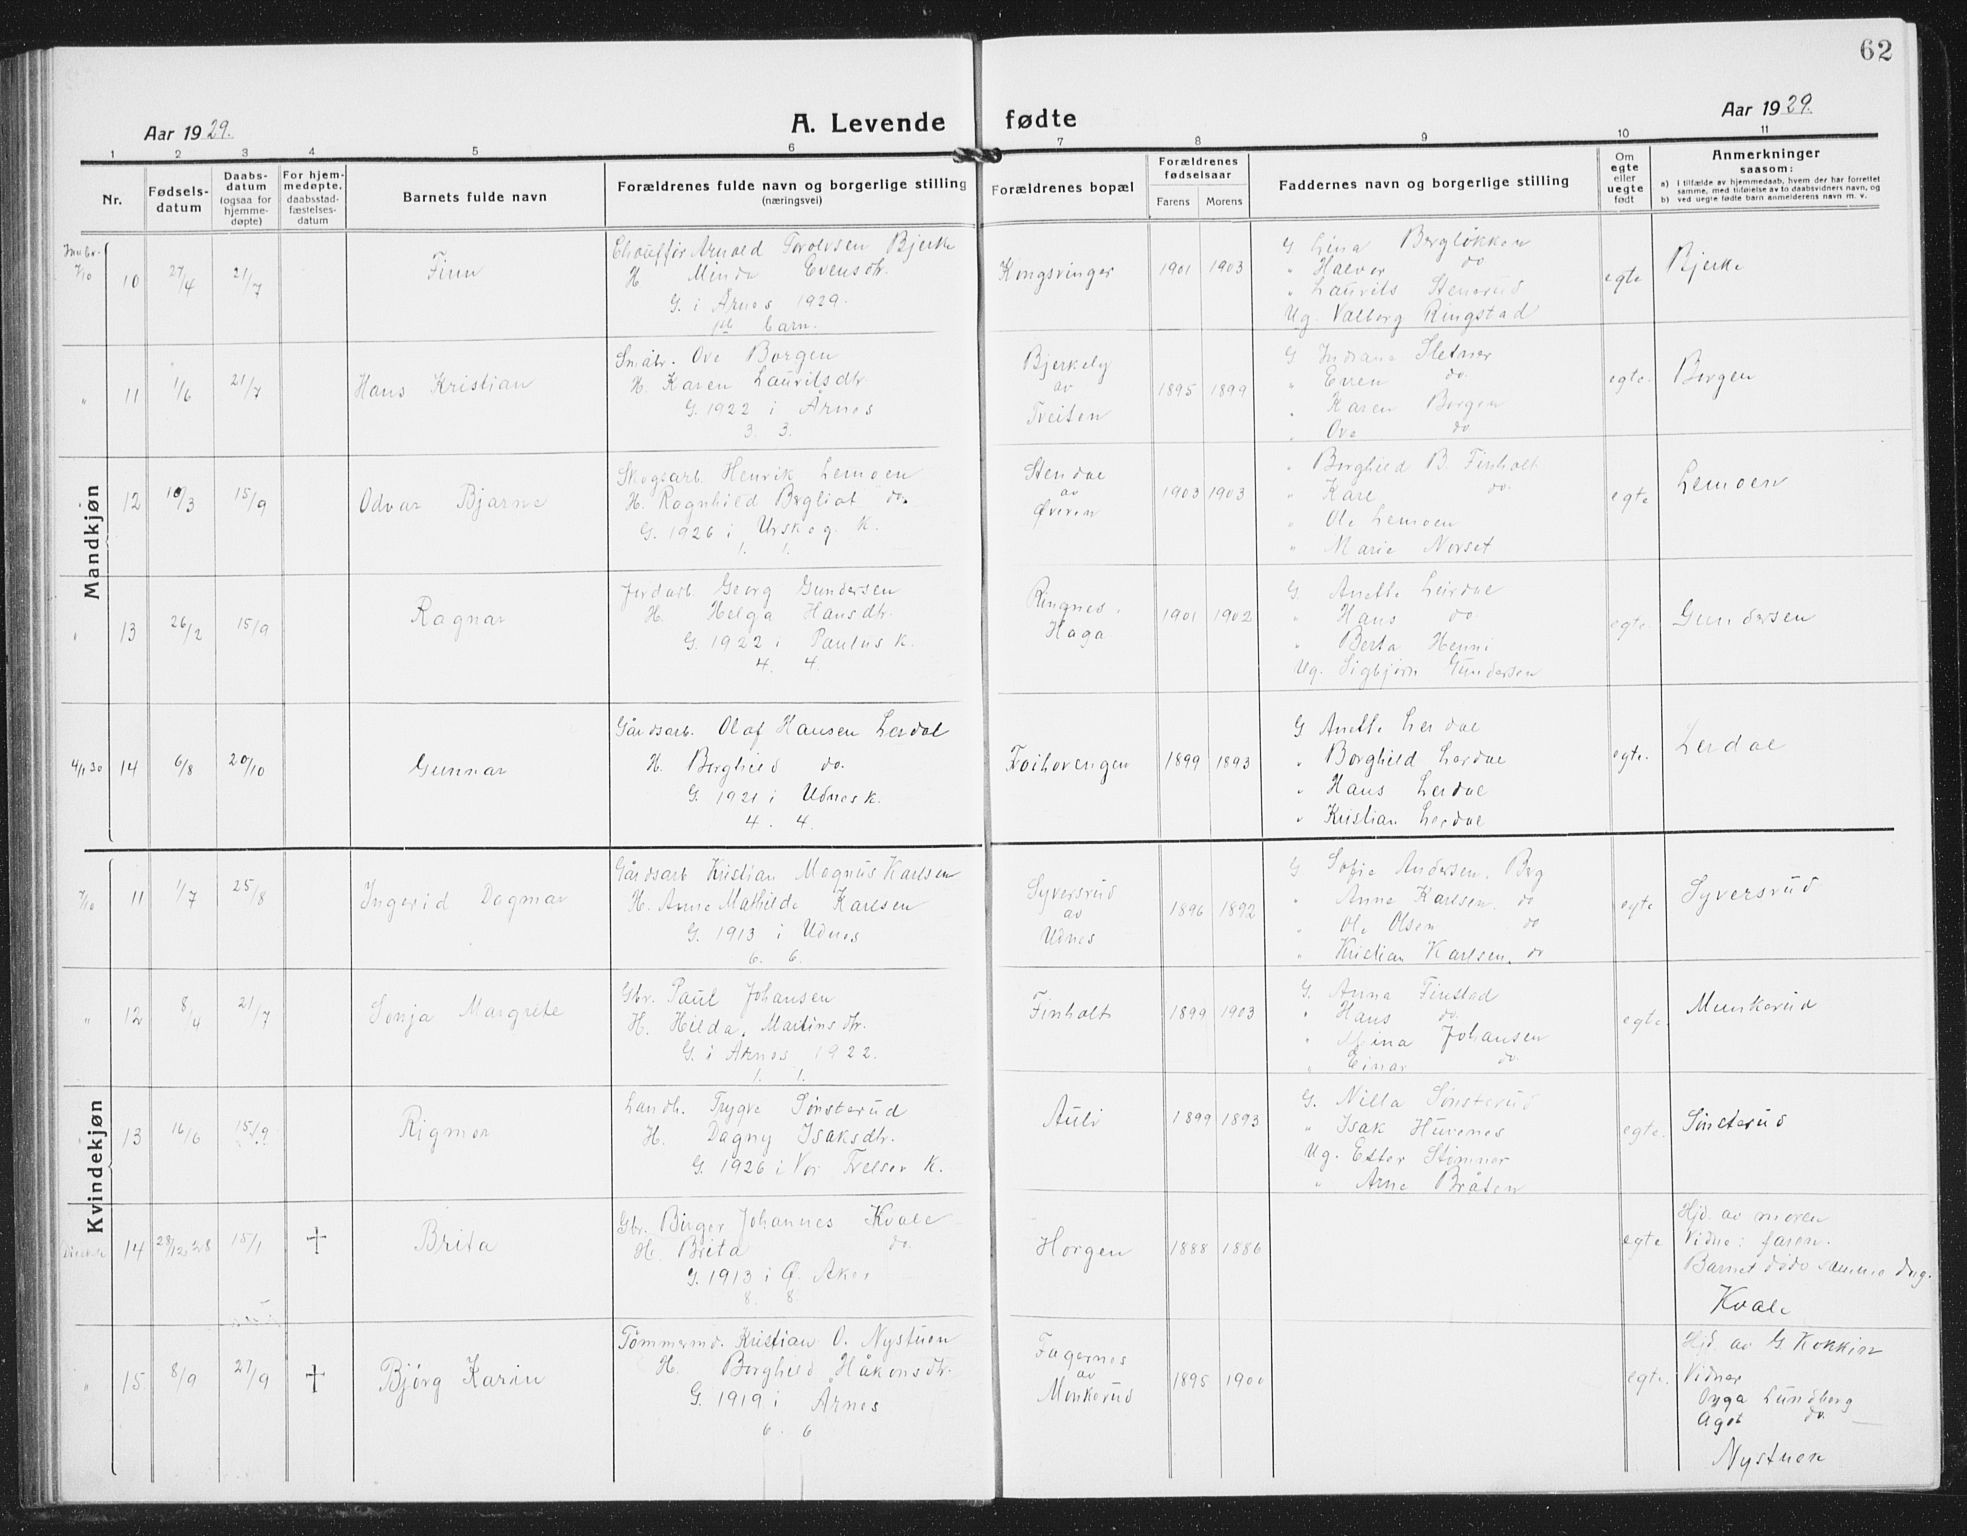 62
Aar 1929.
A. Levende fødte
Aar 1929.
1 2 3 4 5 6 7 8 9 10 11
Nr.
Fødsels-
datum
Daabs-
datum
(ogsaa for
hjemme-
døpte)
For hjem-
medøpte,
daabsstad-
fæstelses-
datum
Barnets fulde navn
Forældrenes fulde navn og borgerlige stilling
(næringsvei)
Forældrenes bopæl
Forældrenes
fødselsaar
Farens Morens
Faddernes navn og borgerlige stilling
Om
egte
eller
uegte
født
Anmerkninger
saasom:
a) i tilfælde av hjemmedaab, hvem der har forrettet
samme, med tilføielse av to daabsvidners navn, og
b) ved uegte fødte barn anmelderens navn m. v.
Mandkjøn
7/10 10 27/4 21/7 Finn
Chauffør Arnold Torolvsen Bjerke
H. Minda Evensdtr.
G. i Årnes 1929.
1ste barn.
Kongsvinger
1901 1903
G Lina Bergløkken
" Halvor do
" Laurits Stenerud
Ug. Valborg Ringstad
egte
Bjerke
" 11 1/6 21/7 Hans Kristian
Småbr. Ove Borgen
H. Karen Lauritsdtr.
G. 1922 i Årnes
3. 3.
Bjerkely
av
Tveiten
1895 1899
G Indiane Sletner
" Even do.
" Karen Borgen
" Ove do
egte.
Borgen
12 10/3 15/9 Odvar Bjarne
Skogsarb. Henrik Lemoen
H. Ragnhild Bergliot do.
G. 1926 i Urskog K.
1. 1.
Stendal
av
Øveren
1903 1903
" Borghild B. Finholt
" Karl do.
" Ole Lemoen
" Marie Norset
egte
Lemoen
" 13 26/2 15/9 Ragnar
Jordarb. Georg Gundersen
H. Helga Hansdtr.
G. 1922 i Paulus K.
4. 4.
Ringnes,
Haga
1901 1902
G. Anette Leirdal
" Hans do.
" Berta Henni
Ug. Sigbjørn Gundersen
egte.
Gundersen
4/1 30 14 6/8 20/10 Gunnar
Gårdsarb. Olaf Hansen Lerdal
H. Borghild do.
G. 1921 i Udnes K.
4. 4.
Foihovengen
1899 1893
G Anette Lerdal
" Borghild Lerdal
" Hans Lerdal
" Kristian Lerdal
egte.
Lerdal
Kvindekjøn
7/10 11 1/7 25/8 Ingerid Dagmar
Gårdsarb Kristian Magnus Karlsen
H. Anne Mathilde Karlsen
G. 1913 i Udnes
6. 6.
Syversrud
av
Udnes
1896 1892
G Sofie Andersen, Berg
" Anna Karlsen, do
" Ole Olsen do
" Kristian Karlsen, do
egte
Syversrud
" 12 8/4 21/7 Sonja Margrete
Gbr. Paul Johansen
H. Hilda Martinsdtr.
G. i Årnes 1922.
1. 1.
Finholt
1899 1903
G. Anna Finstad
" Hans do.
" Mina Johansen
" Einar do.
egte.
Munkerud
13 16/6 15/9 Rigmor
Landh. Trygve Sønsterud
H. Dagny Isaksdtr.
G. 1926 i Vor Frelser K.
Auli
1899 1893
G. Nilla Sønsterud
" Isak Huvenes
Ug. Ester Stømner
" Arne Bråten
egte.
Sønsterud
14 28/12 28 15/1 † Brita
Gbr. Birger Johannes Kvale
H. Brita do.
G. 1913 i Ø. Aker
8. 8.
Horgen
1888 1886
egte
Hjd. av moren
Vidne: faren.
Barnet døde samme dag.
Kvale
" 15 8/9 27/9 † Bjørg Karin
Tømmermd. Kristian O. Nystuen
H. Borghild Håkonsdtr.
G. 1919 i Årnes
6. 6
Fagernes
av
Munkerud
1895 1900
egte.
Hjd. av G. Kokkin
Vidner
Lundberg
Agot do.
Nystuen